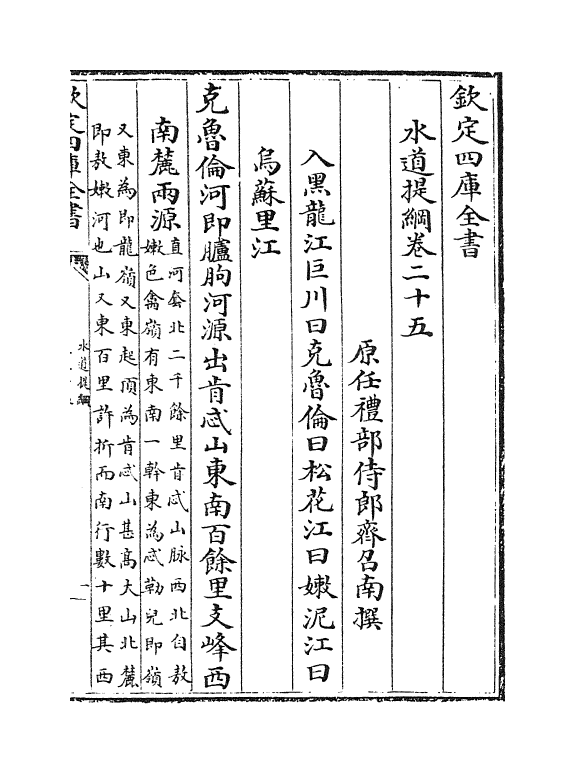 欽定四庫全書
水道提綱卷二十五
原任禮部侍郎齊召南撰
入黑龍江巨川曰克魯倫曰松花江曰嫩泥江曰
烏蘇里江
克魯倫河即臚朐河源出肯忒山東南百餘里支峰西
南麓兩源
直河套北二千餘里肯忒山脉西北自敖
嫩色禽嶺有東南一幹東為忒勒兒即嶺
又東為即龍嶺又東起頂為肯忒山甚高大山北麓
即敖嫩河也山又東百里許折而南行數十里其西
欽定四庫全書
水道提綱
一